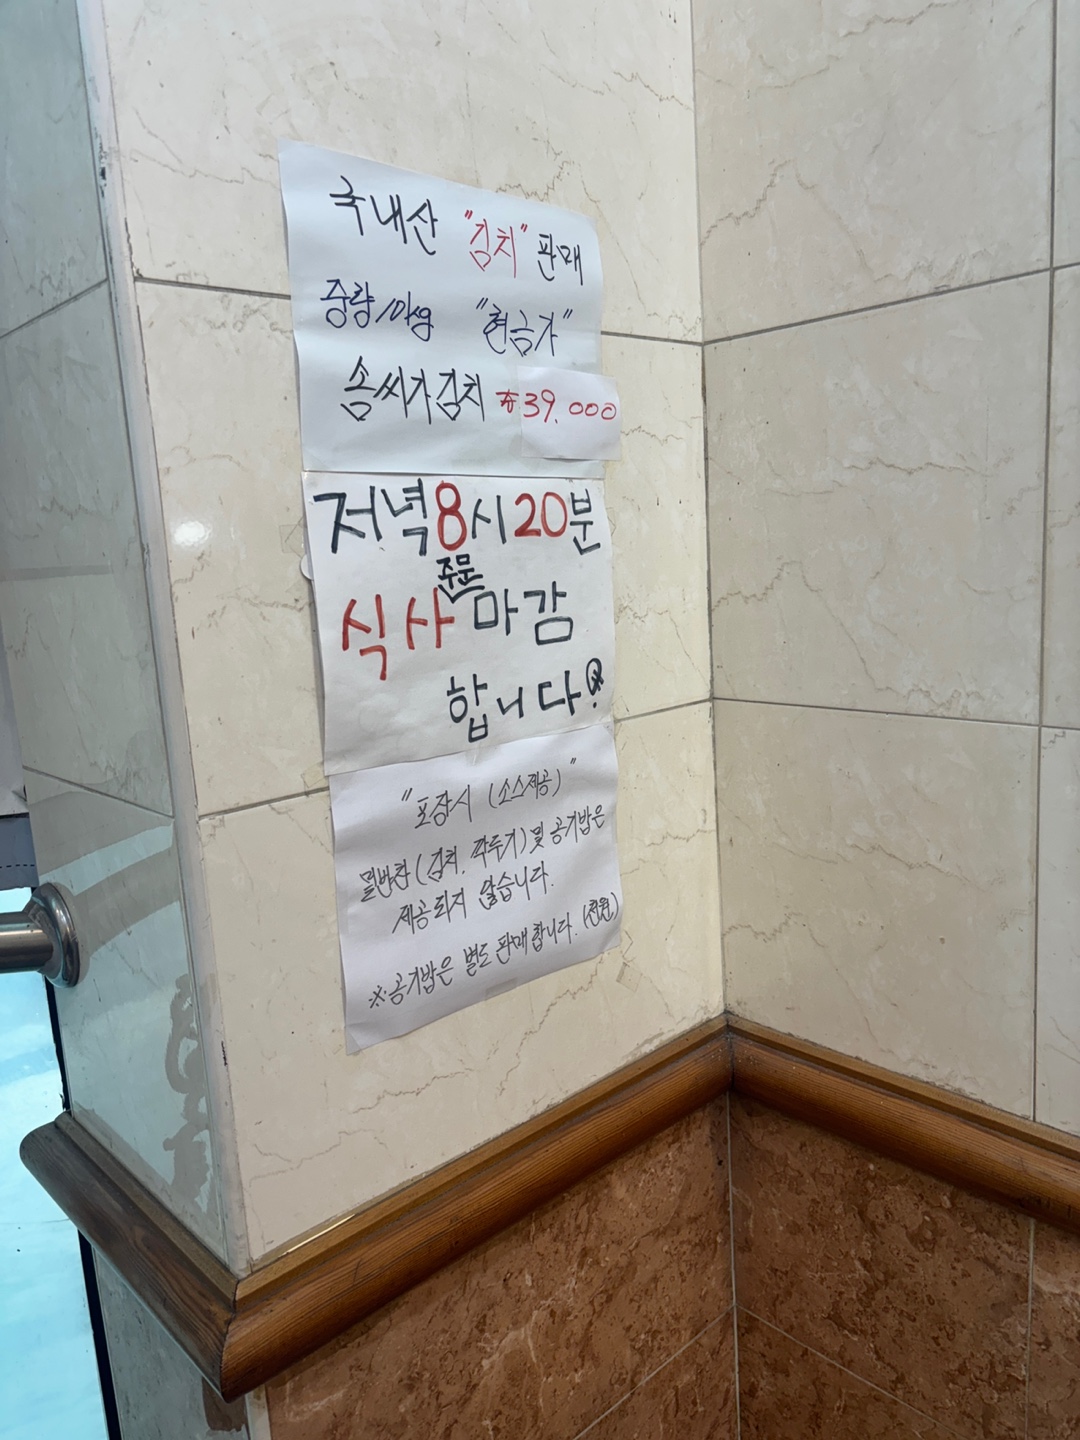 국내산 "김치" 판매
중량/10kg "현금가"
솜씨가김치 ₩39.000
저녁8시20분
주문
식사마감
합니다.
"포장시 (소스제공)"
밑반찬(김치, 깍두기)및 공기밥은
제공되지 않습니다.
※.공기밥은 별도 판매합니다. (천원)